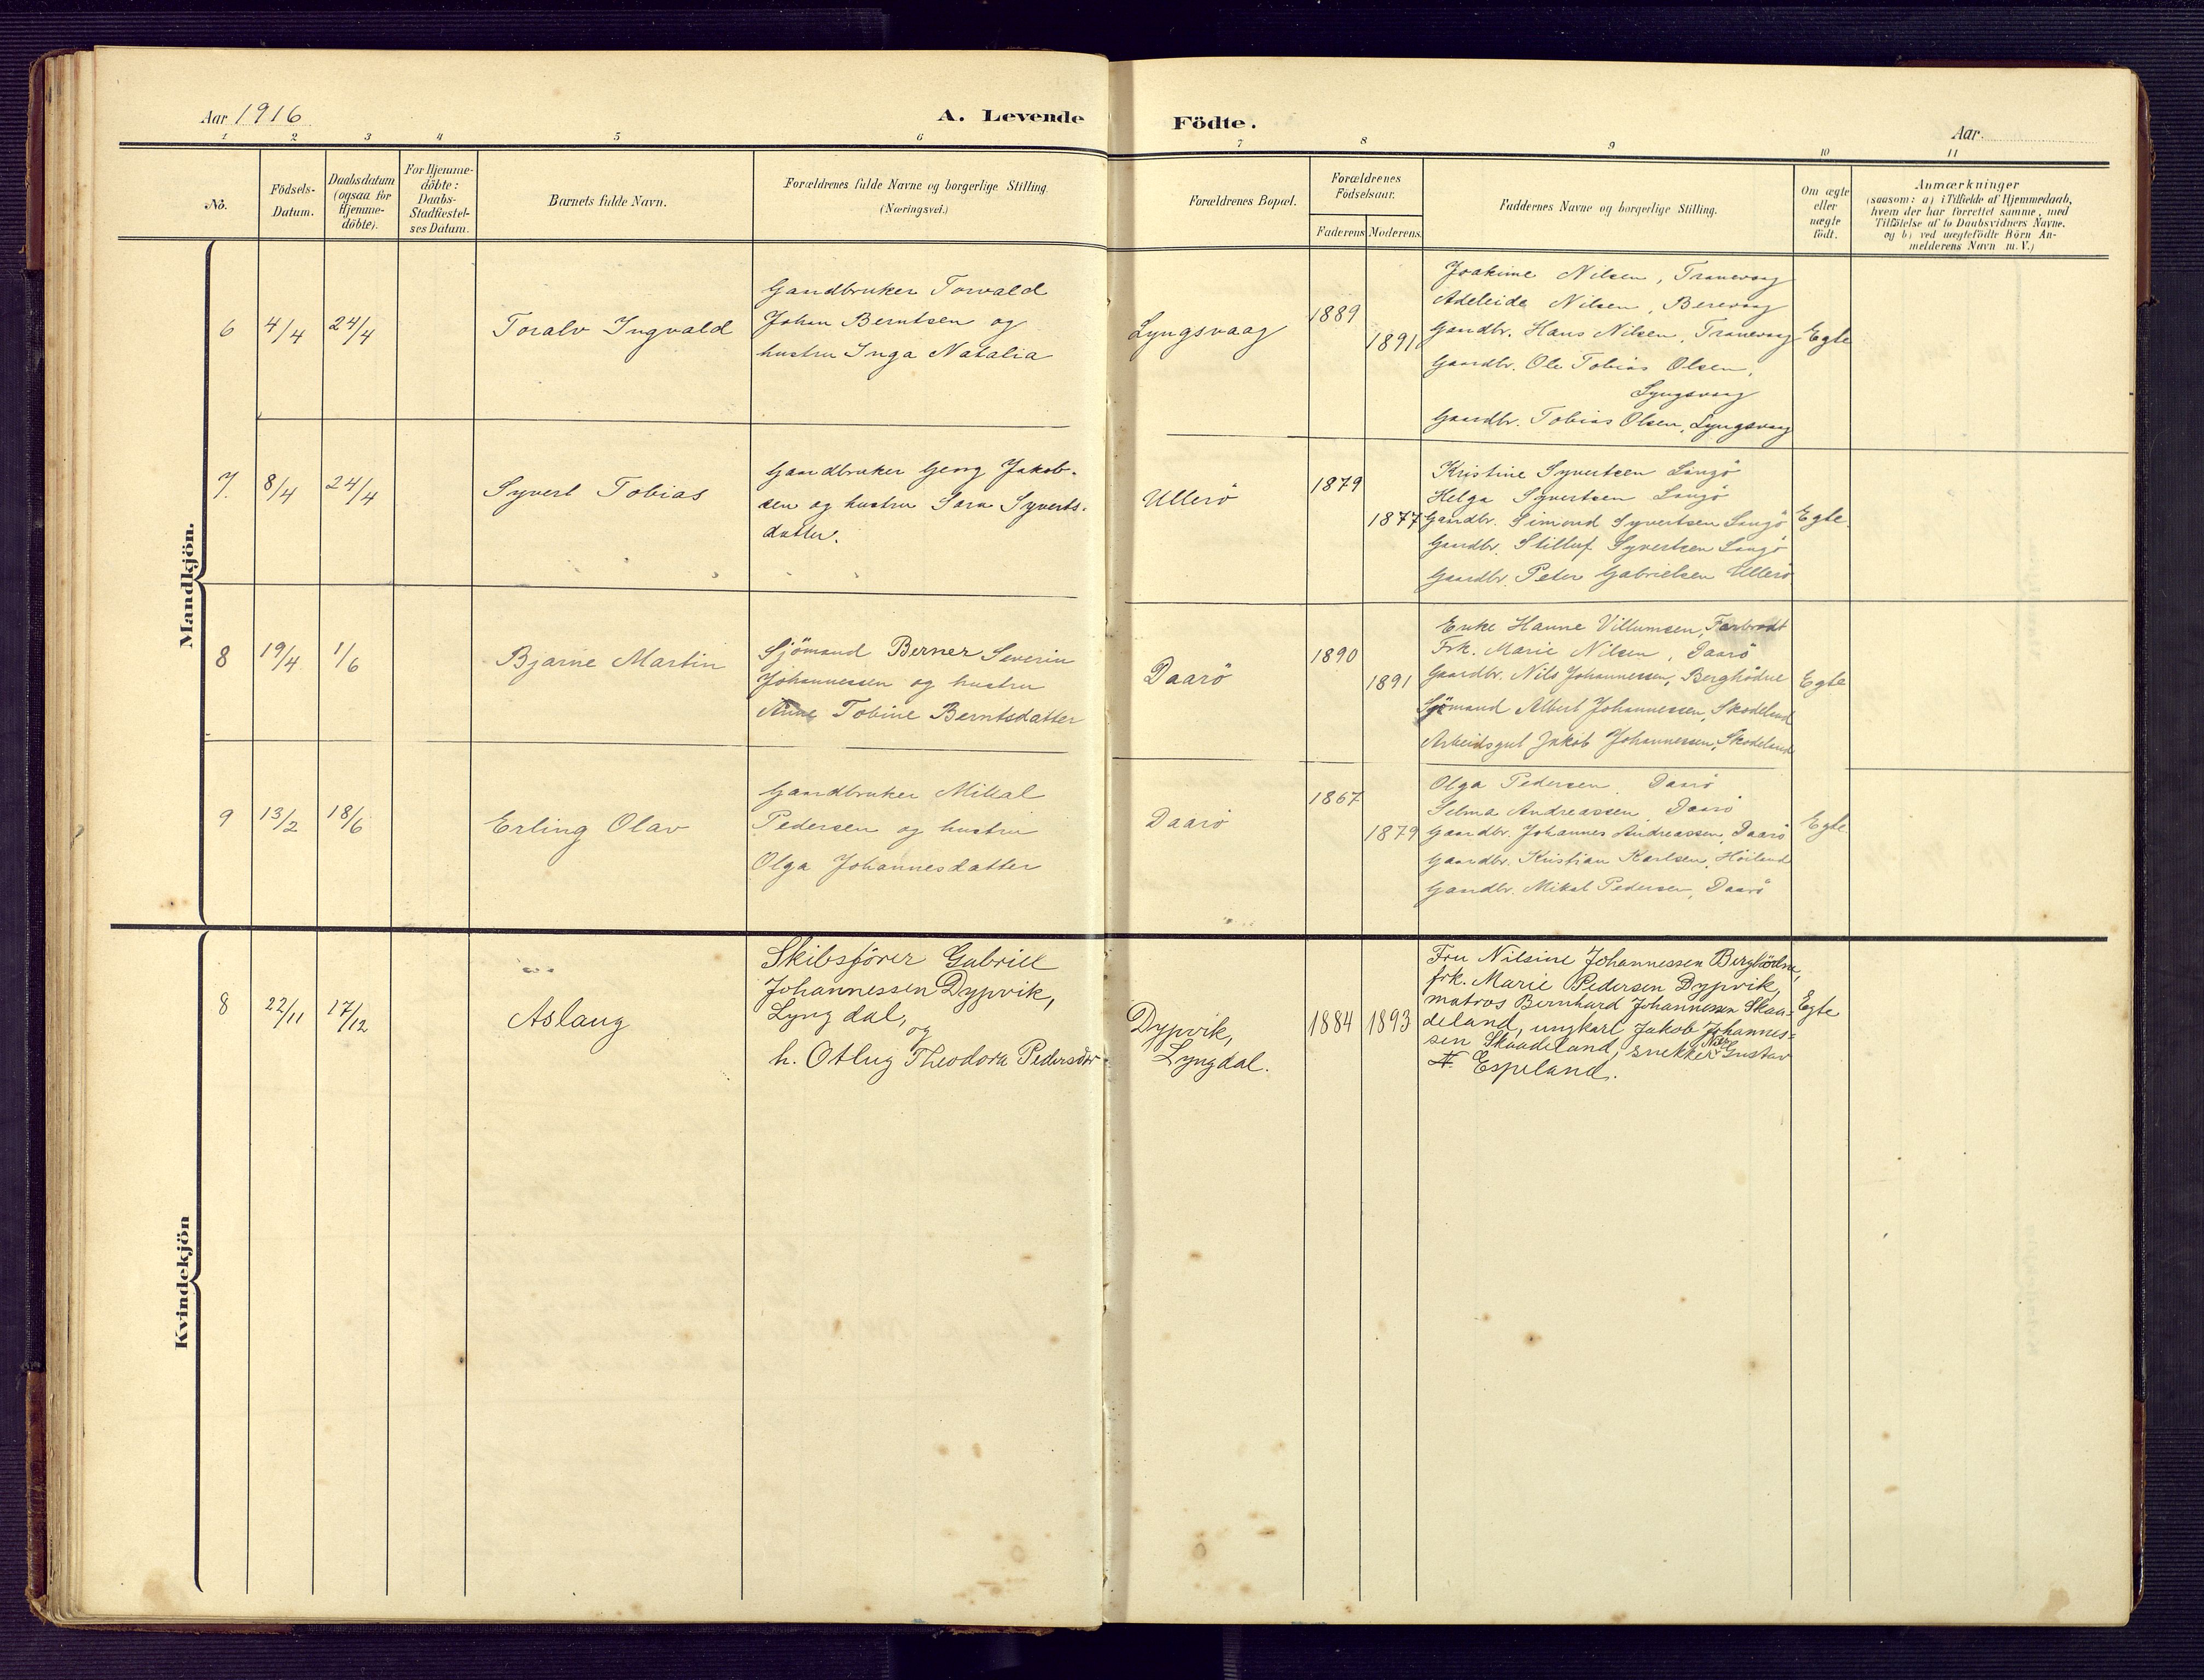 Aar 1916
A. Levende Födte.
Aar
1 2 3 4 5 6 7 8 9 10 11
No.
Födsels-
Datum.
Daabsdatum
(ogsaa for
Hjemme-
döbte).
For Hjemme-
döbte:
Daabs-
Stadfæstel-
ses Datum.
Barnets fulde Navn.
Forældrenes fulde Navne og borgerlige Stilling.
(Næringsvei.)
Forældrenes Bopæl.
Forældrenes
Födselsaar.
Faderens Moderens.
Faddernes Navne og borgerlige Stilling.
Om ægte
eller
uægte
födt.
Anmærkninger
(saasom: a) i Tilfælde af Hjemmedaab,
hvem der har forrettet samme, med
Tilföielse af to Daabsvidners Navne.
og b) ved uægtefödte Börn An-
melderens Navn m. V.)
Mandkjön.
6 4/4 24/4 Toralv Ingvald
Gaardbruker Torvald
Johan Berntsen og
hustru Inga Natalia
Lyngsvaag
1889
1891
Joakime Nilsen, Tranevaag
Adeleide Nilsen, Berevaag
Gaardbr. Hans Nilsen, Tranevaag
Gaardbr. Ole Tobias Olsen,
Lyngsvaag
Gaardbr. Tobias Olsen, Lyngsvaag
Egte
7. 8/4 24/4 Syvert Tobias
Gaardbruker Georg Jakob-
sen og hustru Sara Syverts-
datter.
Ullerö
1879
1877
Kristine Syvertsen Langö
Helga Syvertsen Langö
Gaardbr. Simond Syvertsen Langö
Gaardbr. Stilluf Syvertsen Langö
Gaardbr. Peter Gabrielsen Ullerö
Egte.
8 19/4 1/6 Bjarne Martin
Sjömand Berner Severin
Johannessen og hustru
Anne Tobine Berntsdatter
Daarö
1890
1891
Enke Hanne Villumsen, Farbrodt
Frk. Marie Nilsen, Daarö
Gaardbr. Nils Johannessen, Berghödne
Sjömand Albert Johannessen, Skodeland
Arbeidsgut Jakob Johannessen, Skodeland
Egte
9 13/2 18/6 Erling Olav
Gaardbruker Mikal
Pedersen og hustru
Olga Johannesdatter
Daarö
1867
1879
Olga Pedersen, Daarö
Selma Andreassen, Daarö
Gaardbr. Johannes Andreassen, Daarö
Gaardbr. Kristian Karlsen, Höiland
Gaardbr. Mikal Pedersen, Daarö
Egte.
Kvindekjön
8 22/11 17/12 Aslaug
Skibsförer Gabriel
Johannessen Dypvik,
Lyngdal,
og
h. Otlug Theodora Pedersdtr
Dypvik,
Lyngdal.
1884 1893
Fru Nilsine Johannessen Berghödne,
frk. Marie Pedersen Dypvik,
matros Bernhard Johannessen Skaa-
deland, ungkarl Jakob Johannes-
sen Skaadeland, snekker Gustav
Espeland.
Egte